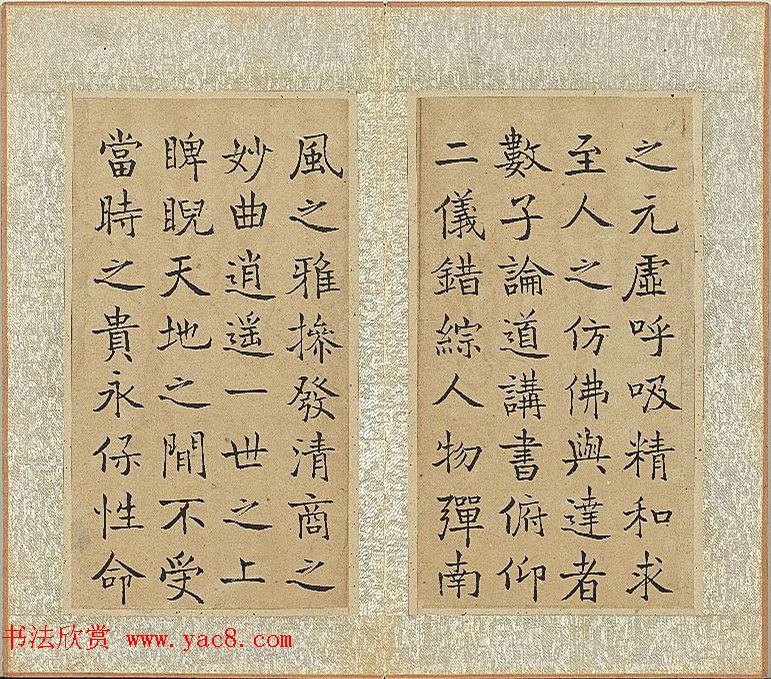 之元虛呼吸精和求
至人之仿佛與達者
數子論道講書俯仰
二儀錯綜人物彈南
風之雅操發清商之
妙曲逍遥一世之上
睥睨天地之間不受
當時之貴永保性命
书法欣赏 www.yac8.com